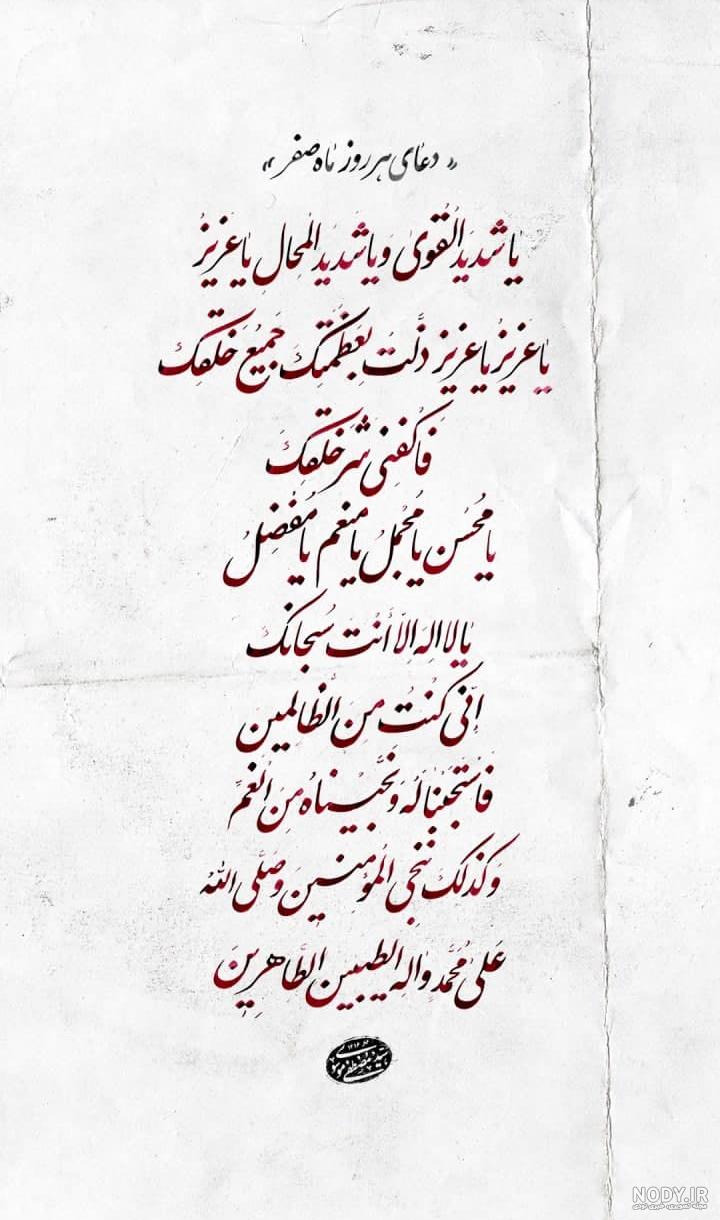 « دعای هر روز ماه صفر »
یٰا شَدیدَ الْقُویٰ وَ یٰا شَدیدَ الْمِحٰالِ یٰا عَزیزُ
یٰا عَزیزُ یٰا عَزیز ذَلَّتْ بِعَظَمَتِکَ جَمیعُ خَلْقِکَ
فَاکْفِنی شَرَّ خَلْقِکَ
یا مُحْسِن یا مُجْمِلُ یا مُنْعِم یا مُفْضِلُ
یٰا لا اِلٰهَ اِلّا أَنْتَ سُبْحانَکَ
اِنّی کُنْتُ مِنَ الظّالِمینَ
فَاسْتَجَبْنا لَهُ وَ نَجَّیْناهُ مِنَ الْغَمِّ
وَ کَذلِکَ نُنْجِی الْمُؤمِنینَ وَ صَلَّی اللهُ
عَلیٰ مُحَمَّدٍ وَ الِهِ الطَّیِّبینَ الطّاهِرینَ
سید مصطفی موسوی
NODY.IR